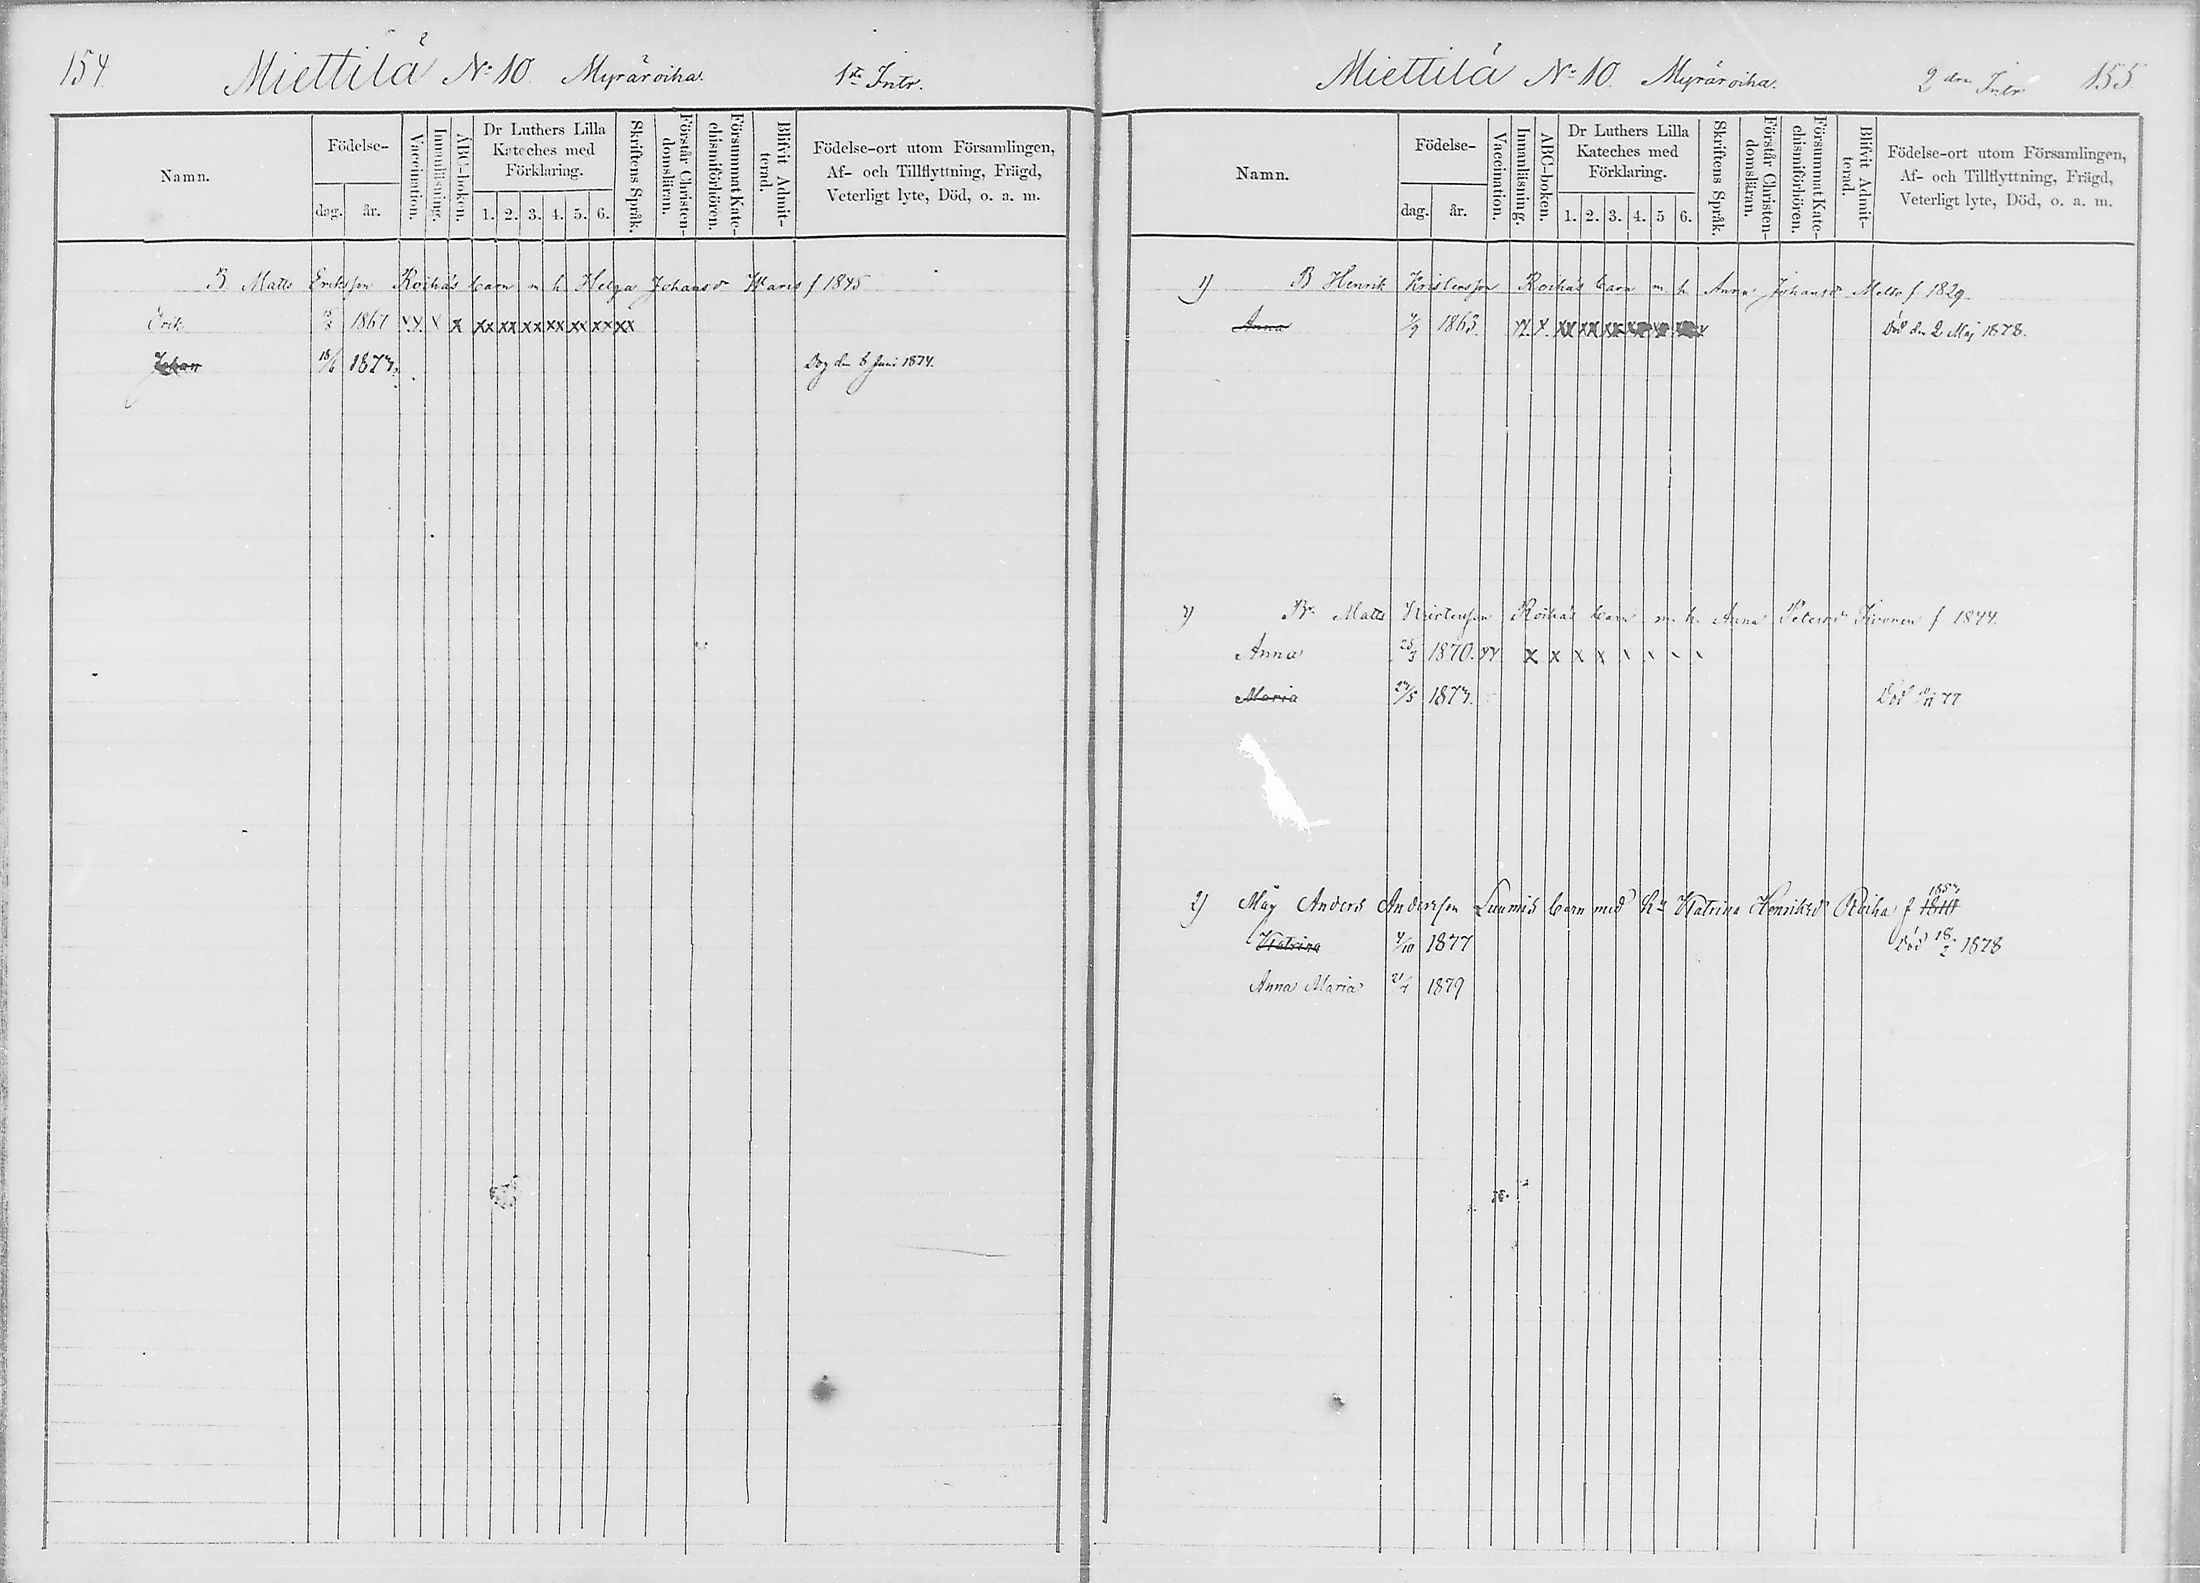 154 Miettilä No 10. Myräröiha. 1sta Intr.
Namn.
Födelse-
dag. år.
Vaccination.
Innanläsning.
ABC-boken.
Dr Luthers Lilla
Kateches med
Förklaring.
1. 2. 3. 4. 5. 6.
Skriftens Språk.
Förstår Christen-
domsläran.
Försummat Kate-
chismiförhören.
Blifvit Admit-
terad.
Födelse-ort utom Församlingen,
Af- och Tillflyttning, Frägd,
Veterligt lyte, Död, o. a. m.
B. Matts Eriksson Roiha's barn m. h. Helga Johansdr Waris f 1845
Erik 1867
Johan 18/6 1874. Dog den 8 Juni 1874.
Miettilä No 10. Myräröiha. 2dra Intr 155
Namn.
Födelse-
dag. år.
Vaccination.
Innanläsning.
ABC-boken.
Dr Luthers Lilla
Kateches med
Förklaring.
1. 2. 3. 4. 5 6.
Skriftens Språk.
Förstår Christen-
domsläran.
Försummat Kate-
chismiförhören.
Blifvit Admit-
terad.
Födelse-ort utom Församlingen,
Af- och Tillflyttning, Frägd,
Veterligt lyte, Död, o. a. m.
1) B Henrik Kristersson Roiha's barn m. h. Anna Johansdr f. 1829.
Anna 1863. Död den 2 Maj 1878.
Br. Matts Kristersson Roiha's barn m. h. Anna Petersdr f. 1844.
Anna 25/3 1870.
Maria 1874. Död 77
2) Måg Anders Andersson barn med h. Katrina Henriksdr Roiha f 1810
Katrina 1877 Död 18/2 1878
Anna Maria 1879